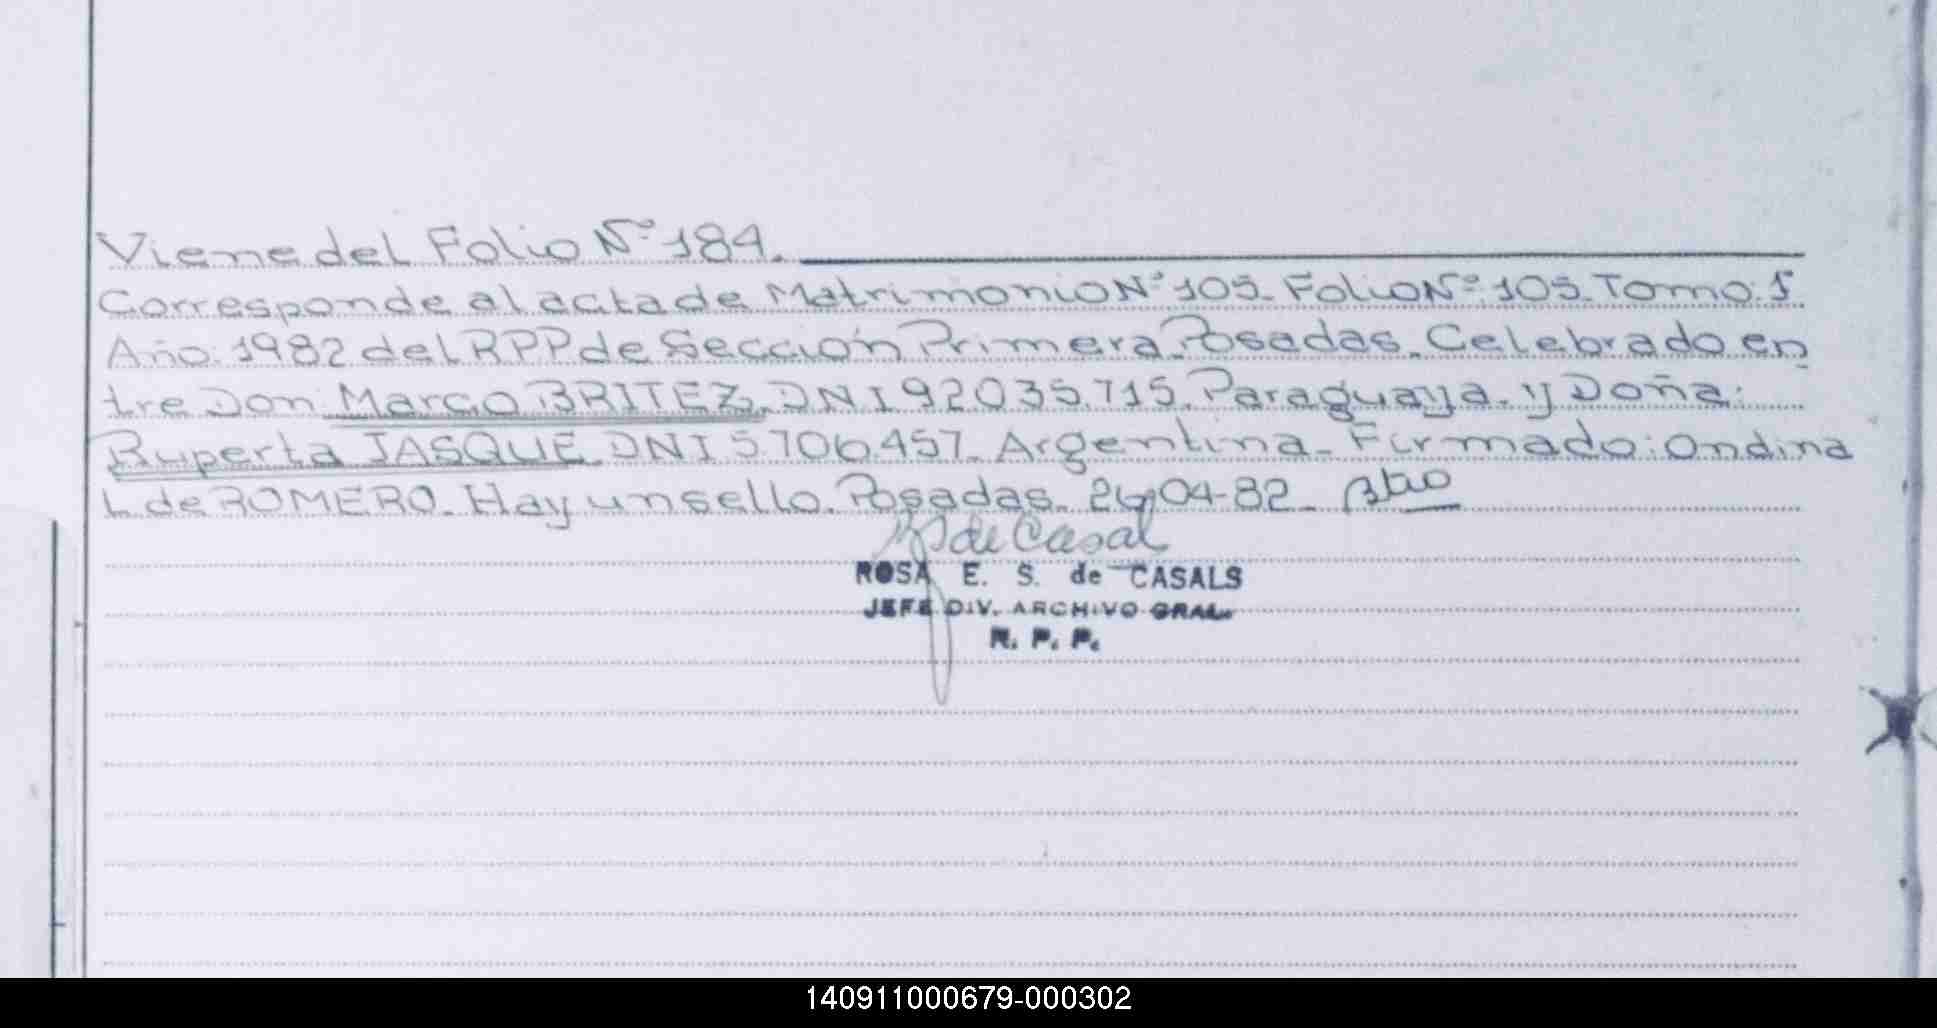 Viene del Folio Nº 184.
Corresponde al acta de Matrimonio Nº 105. Folio Nº 105. Tomo: I
Año: 1982 del RPP de Sección Primera. Posadas. Celebrado en
tre Don: Marco BRITEZ. DNI 92.035.715. Paraguaya. y Doña:
Ruperta JASQUE DNI 5.706.457. Argentina. Firmado: Ondina
L. de ROMERO. Hay un sello. Posadas. 04-82.
de Casal
ROSA E. S. de CASALS
JEFE DIV. ARCHIVO GRAL.
R. P. P.
140911000679-000302